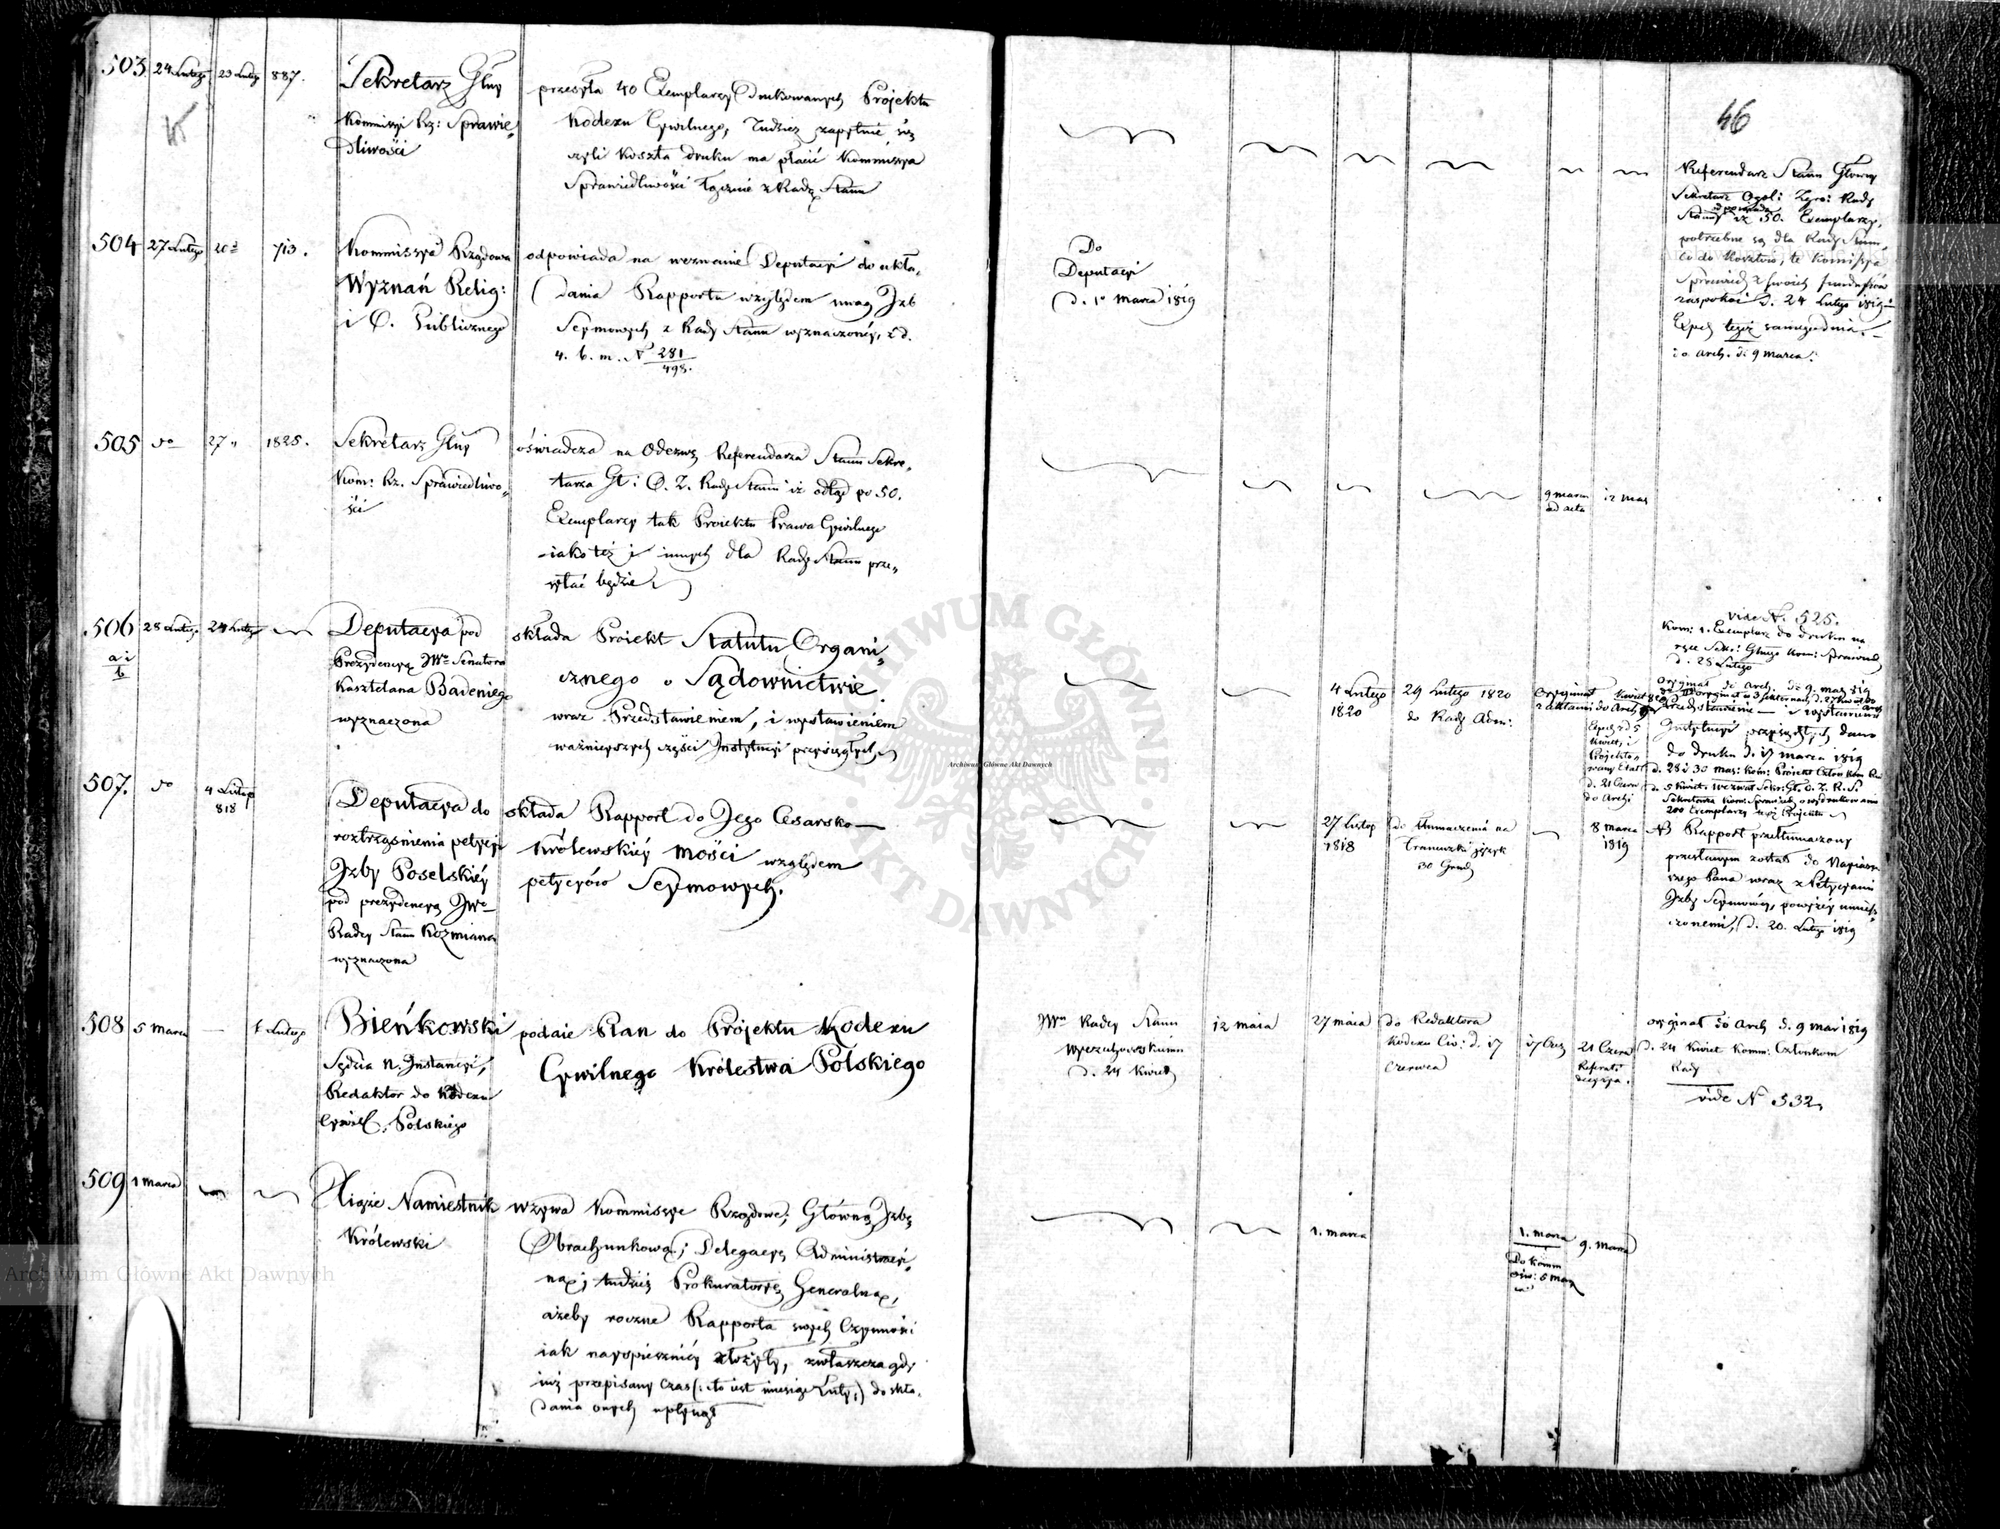 503 24 Lutego 23 Lutego 887.
Sekretarz Głny
Kommissyi Rz: Sprawie„
dliwości
przesyła 40 Exemplarzy drukowanych Projektu
Kodexu Cywilnego, tudzież zapytuie się
czyli koszta druku ma płacić Kommissya
Sprawiedliwości łącznie z Radą Stanu
46
Referendarz Stanu Głowny
Sekretarz Ogol: Zgro: Rady
Stanu iż 50. Exemplarzy,
potrzebne są dla Rady Stanu,
co do kosztów, te Komissya
Sprawied z swoich funduszów
zaspokoi d. 24 Lutego 1819
Exped tegoż samego dnia.
do arch. d. 9 marca.
504 27 Lutego 713.
Kommissya Rządowa
Wyznań Relig:
i O. Publicznego
odpowiada na wezwanie Deputacyi do ukła„
dania Rapportu względem uwag Izb
Seymowych z Rady Stanu wyznaczonéy, z d.
4. b. m. N 281/498.
Do
Deputacyi
d. 1o marca 1819
505 do 27 „ 1825.
Sekretarz Głny
Kom: Rz. Sprawiedliwo„
ści
oświadcza na Odezwę Referendarza Stanu Sekre„
tarza Gł: O. Z. Rady Stanu iż odtąd po 50.
Exemplarzy tak Proiektu Prawa Cywilnego
iako też i innych dla Rady Stanu prze„
syłać będzie
9 marca
ad acta
12 mar
506 28 Lutego 24 Lutego
a i
b
Deputacya pod
Prezydencyą JWo Senatora
Kasztelana Badeniego
wyznaczona
składa Proiekt Statutu Organi„
cznego o Sądownictwie
wraz Przedstawieniem, i wystawieniem
ważnieyszych części Instytucyi przysięgłych
4 Lutego
1820
29 Lutego 1820
do Rady Adm:
Oryginał
z aktami do Arch
Exped d 5
Kwiet. i
Projekto„
wany Etat
d. 21 Czerw
do Archi
vide N. 525.
Kom: 1. Exemplarz do druku na
ręce Sekr: Głnego Kom: Sprawied
d. 28 Lutego
Oryginał do Arch. d. 9. mar 1819
Przedstawienie i wystawienie
Instytucyi przysięgłych dano
do druku d. 17 marca 1819
d. 28 i 30 mar: Kom: Projekt Człon Kom Rz
d. 5 Kwiet. wezwał Sekr: Gł. O. Z. R. S.
Sekretarza Kom: Sprawied. o wydrukowanie
200 Exemplarzy tegoż Projektu
507. do 4 Lutego
818
Deputacya do
roztrząśnienia petycyi
Izby Poselskiéy
pod prezydencyą JWo
Radcy Stanu Koźmiana
wyznaczona
składa Rapport do Jego Cesarsko
Królewskiéy Mości względem
petycyów Seymowych.
27 Listop
1818
do tłumaczenia na
francuzki język
30 Grud
8 marca
1819
NB Rapport przetłumaczony
przesłanym został do Nayiaśn
szego Pana wraz z Petycyami
Izby Seymowéy, powyżéy umies„
czonemi, d. 20. Lutego 1819
508 5 marca — 1 Lutego
Bieńkowski
Sędzia n. Instancyi,
Redaktor do Kodexu
Cywil. Polskiego
podaie Plan do Projektu Kodexu
Cywilnego Królestwa Polskiego
JWu Radcy Stanu
Wyczechowskiemu
d. 24 Kwiet
12 maia
27 maia
do Redaktora
Kodexu Civ: d. 17
czerwca
17 Czer
21 Czerw
Referat
decyzya.
oryginał do Arch d. 9 mar 1819
d. 24 Kwiet Komm: Członkom
Rady
vide N 532,
509 1 marca
Xiąże Namiestnik
Królewski
wzywa Kommissye Rządowe, Główną Izbę
Obrachunkową; Delegacyą Administracyi„
ną; tudzież Prokuratoryę Generalną,
ażeby roczne Rapporta swych Czynności
iak nayspieszniéy złożyły, zwłaszcza gdy
iuż przepisany czas (: to iest miesiąc Luty:) do skła„
dania onych upłynął
1. marca
1. marca
Do Komm
ośw: 5 mar
9. marca
Archiwum Główne Akt Dawnych
ARCHIWUM GŁÓWNE
AKT DAWNYCH
Archiwum Główne Akt Dawnych